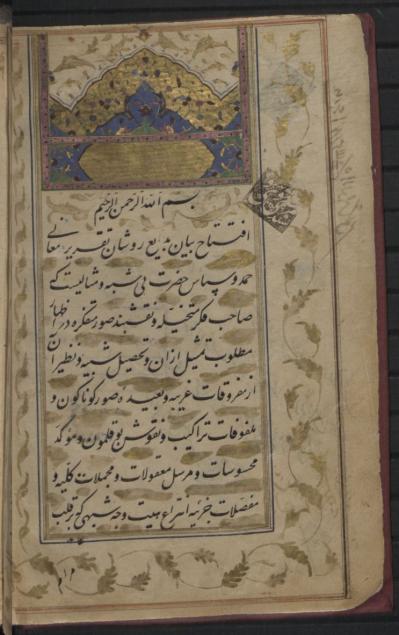 بسم الله الرحمن الرحیم
افتتاح بیان بدیع روشان تقریر معانی
حمد و سپاس حضرت بی شبه و مثالیست که
صاحب فکر متخیله و نقشبند صور متفکره در اظهار
مطلوب تمثیل ازان و تحصیل شبیه و نظیر آن
از مفروقات غریبه و بعیده صور کوناکون و
ملفوفات تراکیب و نقوش بوقلمون و موکد
محسوسات و مرسل معقولات و مجملات کلیه و
مفصلات جزئیه انتزاع هیت وجه شبهی که بر قلب